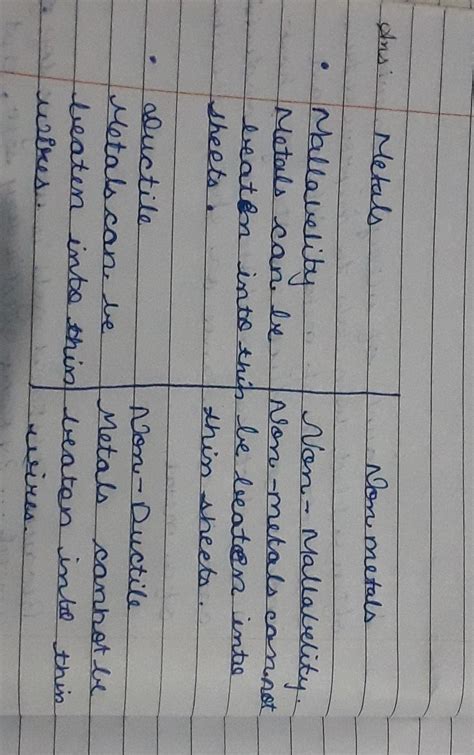 Ans: Metals Non metals
• Mallabelity Non - Mallabelity.
Metals can be Non-metals cannot
beaten into thin be beaten into
sheets. thin sheets.
• Ductile Non - Ductile
Metals can be Metals cannot be
beaten into thin beaten into thin
wires. wires.